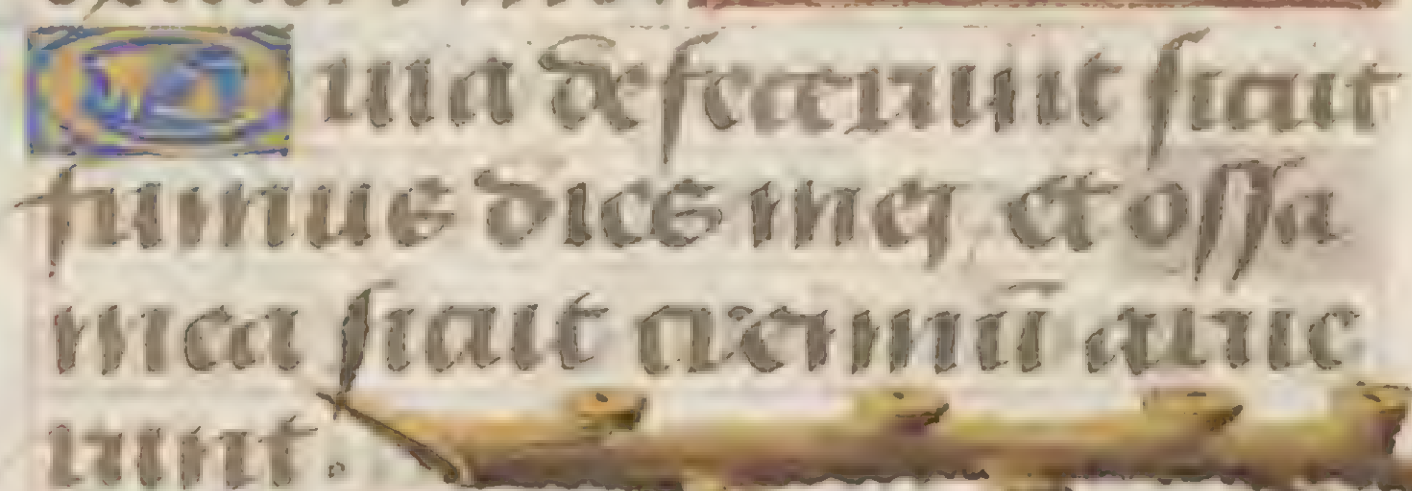 Quia defecerunt sicut
fumus dies mei et ossa
mea sicut cremiū arue
runt.